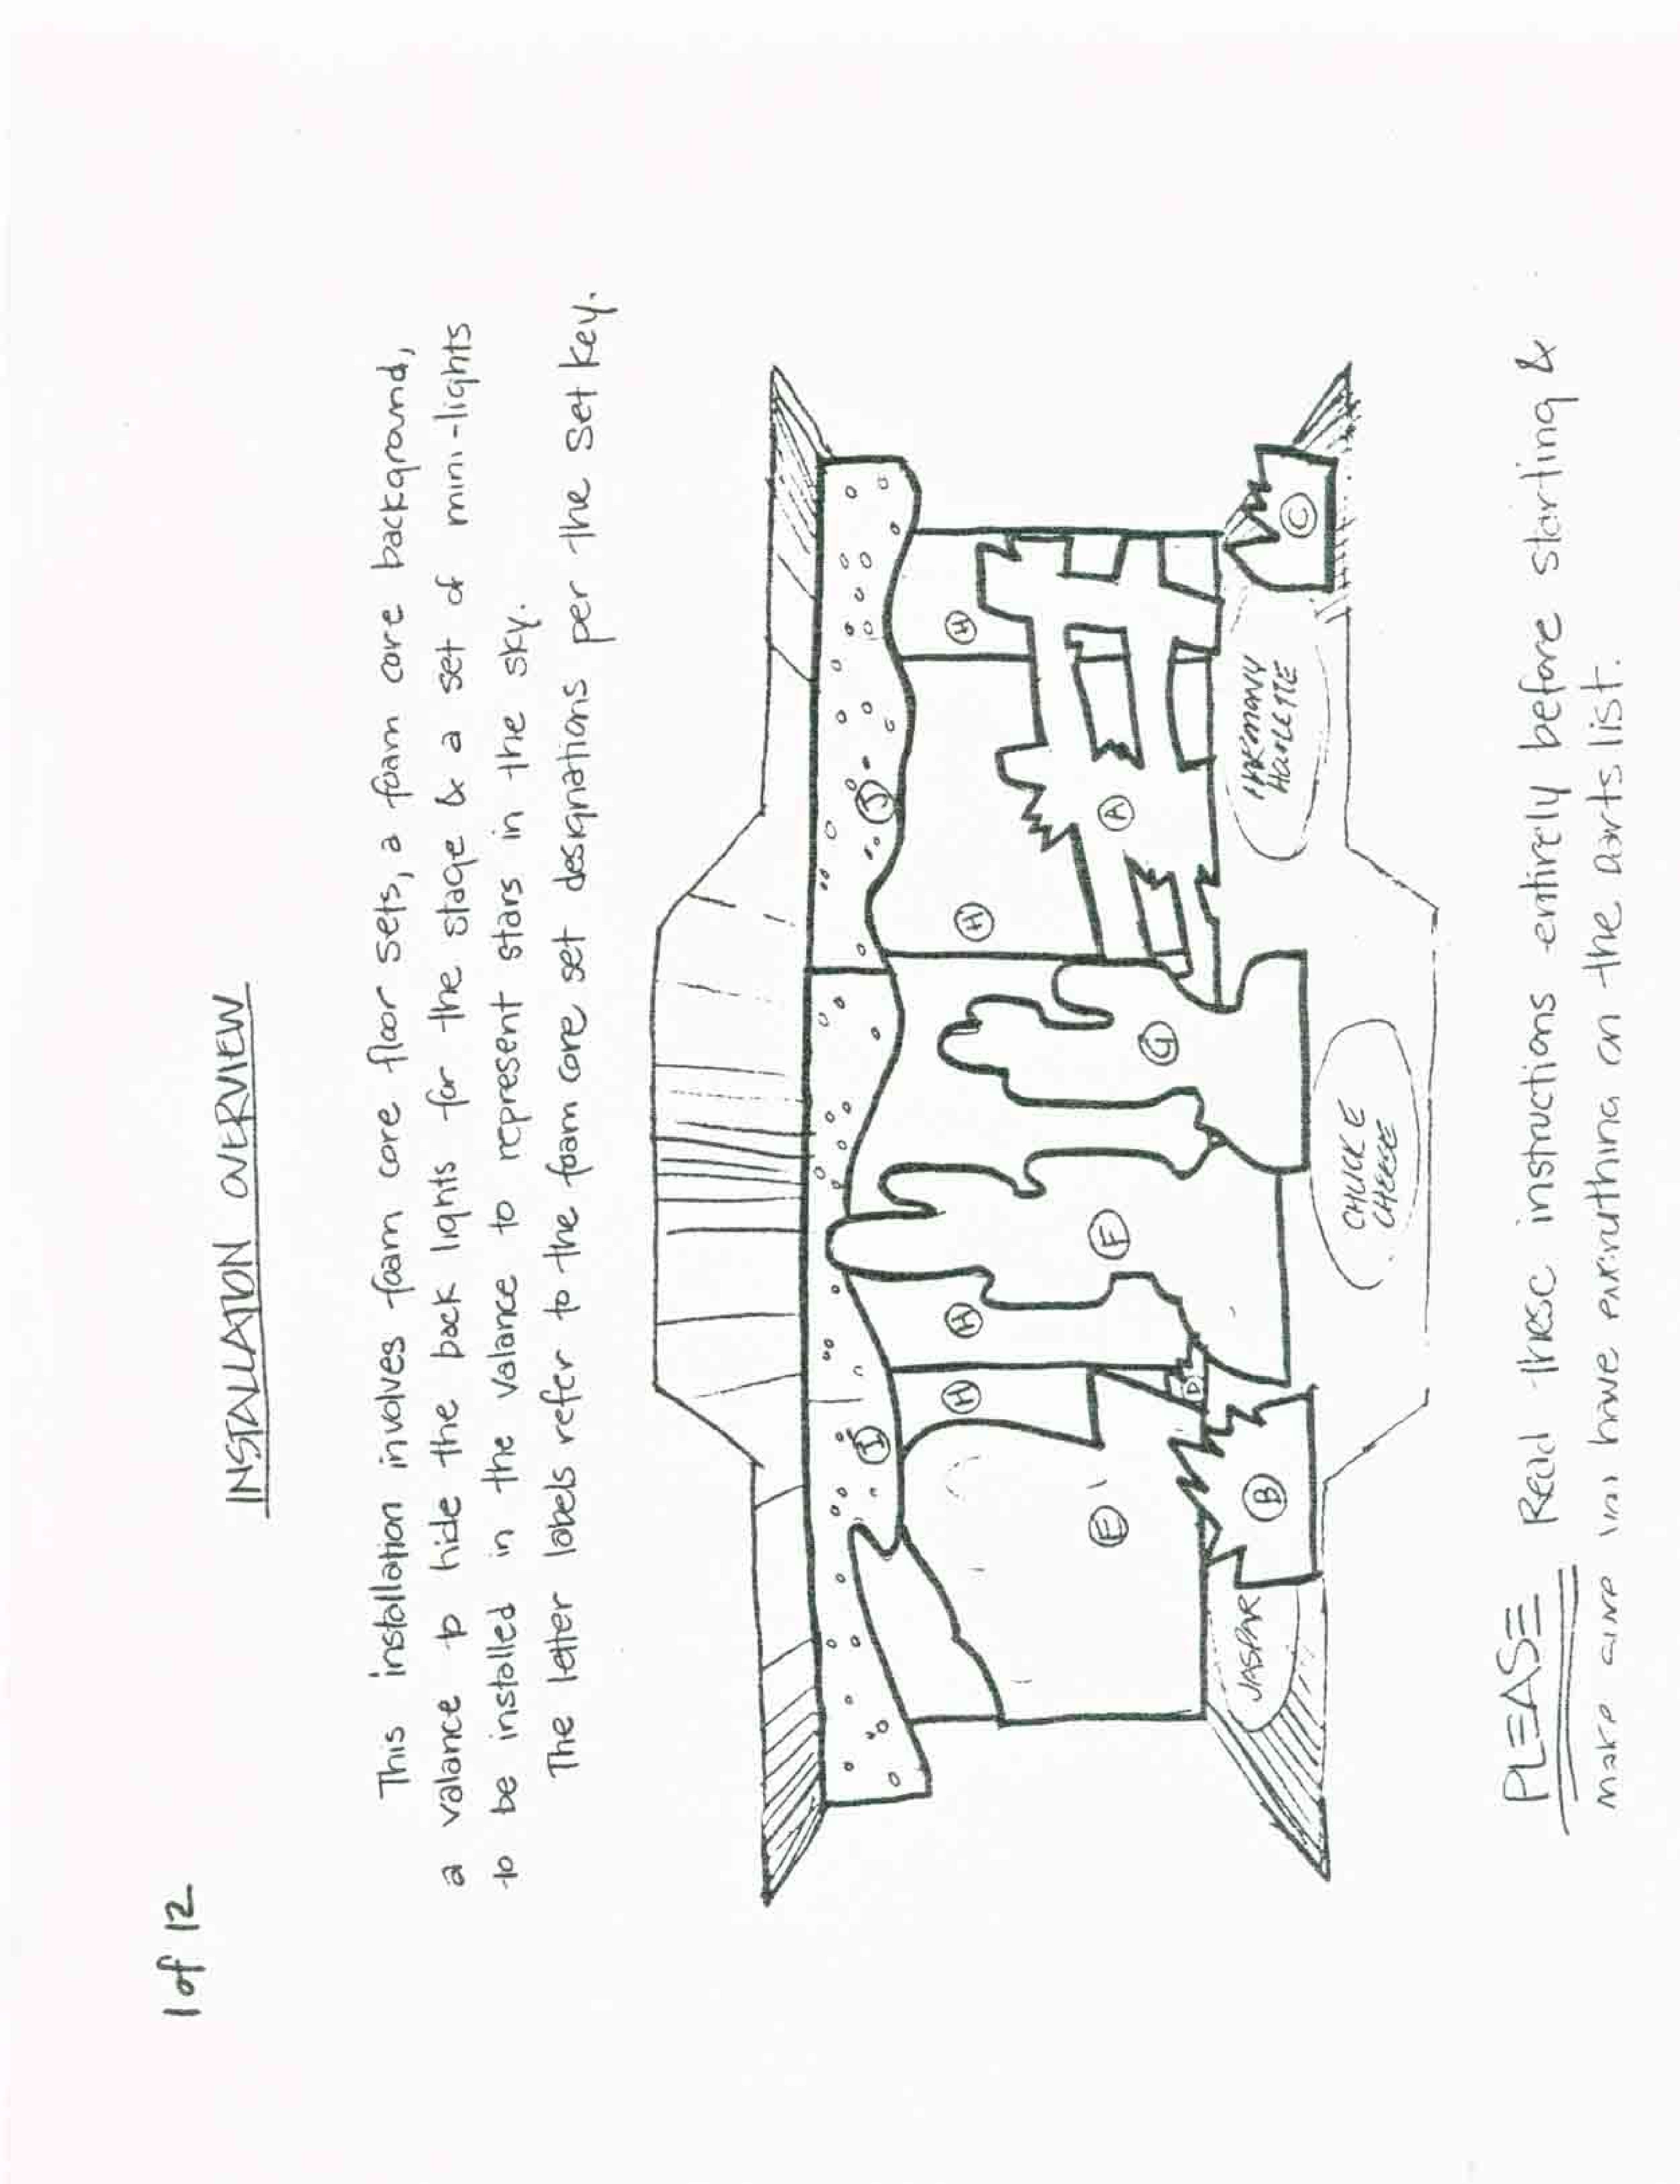 1 of 12
INSTALLATION OVERVIEW
This installation involves foam core floor sets, a foam core background,
a valance to hide the back lights for the stage & a set of mini-lights
to be installed in the valance to represent stars in the sky.
The letter labels refer to the foam core set designations per the set key.
I
J
H
H
H
H
E
F
G
A
D
B
C
JASPER
CHUCK E
CHEESE
HARMONY
HOWLETTE
PLEASE Read these instructions entirely before starting &
make sure you have everything on the parts list.